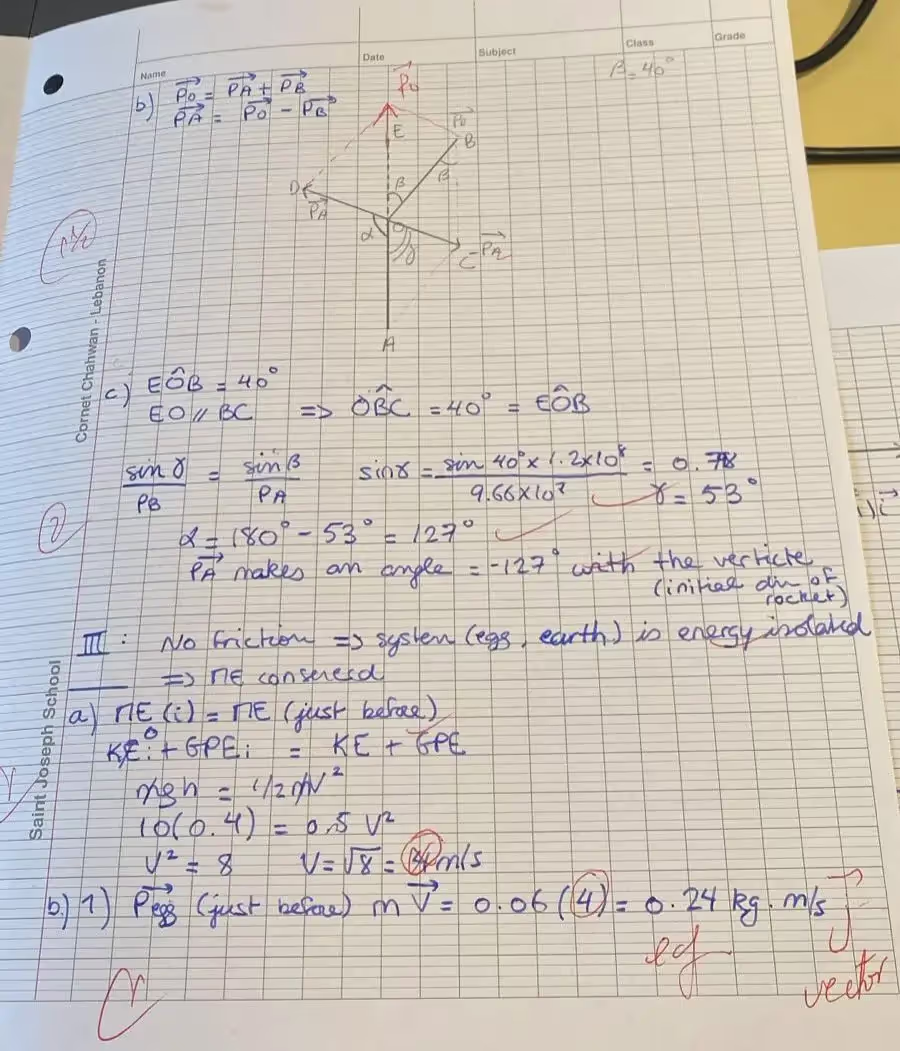 Name Date Subject Class Grade
β = 40°
b) P₀ = PA + PB
PA = P₀ - PB
P₀
E
P₀
B
D
β
β
PA
α
O
γ
C
-PA
A
Cornet Chahwan - Lebanon
c) EÔB = 40°
EO // BC => OB̂C = 40° = EÔB
sin γ / PB = sin β / PA sin γ = sin 40° × 1.2×10⁸ / 9.66×10⁷ = 0.78
γ = 53°
2
α = 180° - 53° = 127°
PA makes an angle = -127° with the verticle
(initial dir of rocket)
III : No friction => system (egg, earth) is energy isolated
=> ME conserved
Saint Joseph School
a) ME (i) = ME (just before)
KEi⁰ + GPEi = KE + GPE
mgh = 1/2 mV²
10(0.4) = 0.5 V²
V² = 8 V = √8 = m/s
b.) 1) Pegg (just before) m V = 0.06 (4) = 0.24 kg. m/s j
vector